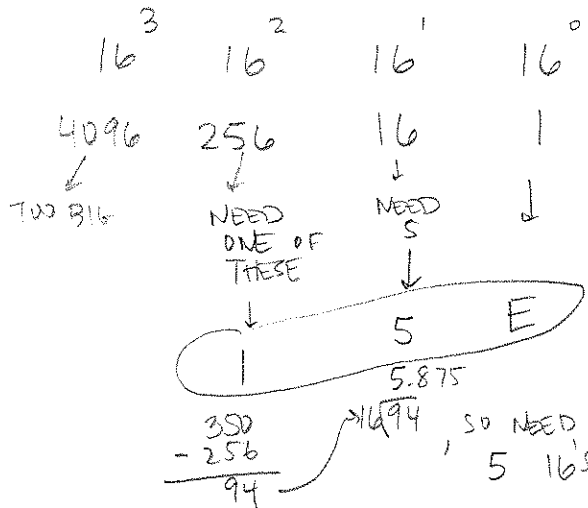 16³ 16² 16¹ 16⁰
4096 256 16 1
TOO BIG
NEED ONE OF THESE
NEED 5
1 5 E
5.875
350
16)94 , SO NEED
- 256
5 16's
94